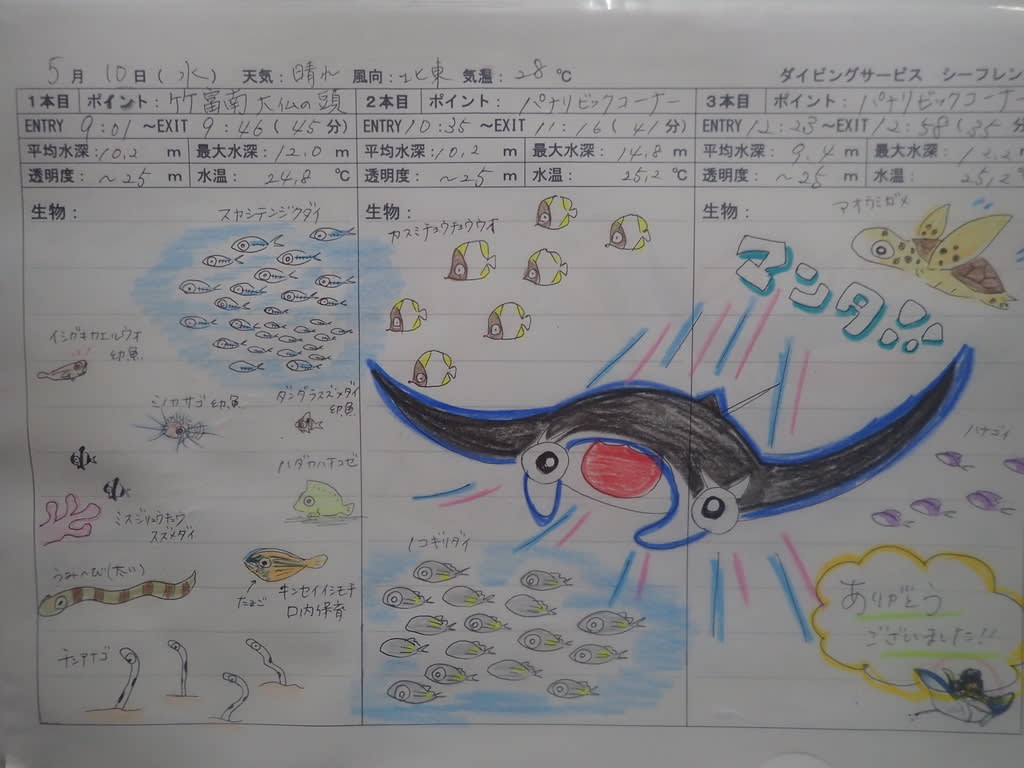 5月10日(水) 天気:晴れ 風向:北東 気温:28℃ ダイビングサービス シーフレン
1本目 ポイント:竹富南大仏の頭
ENTRY 9:01 ~EXIT 9:46(45分)
平均水深:10,2 m 最大水深:12.0 m
透明度:~25 m 水温:24,8 ℃
生物:
スカシテンジクダイ
イシガキカエルウオ
幼魚
ミノカサゴ幼魚
ダンダラスズメダイ
幼魚
ハダカハオコゼ
ミスジリュウキュウ
スズメダイ
うみへび(太い)
たまご
キンセイイシモチ
口内保育
チンアナゴ
2本目 ポイント:パナリビックコーナー
ENTRY 10:35 ~EXIT 11:16(41分)
平均水深:10,2 m 最大水深:14,8 m
透明度:~25 m 水温:25,2 ℃
生物:
カスミチョウチョウウオ
ノコギリダイ
3本目 ポイント:パナリビックコーナー
ENTRY 12:23~EXIT 12:58(35分)
平均水深:9.4 m 最大水深:12,2 m
透明度:~25 m 水温:25,2℃
生物:
アオウミガメ
マンタ!!
ハナゴイ
ありがとう
ございました!!